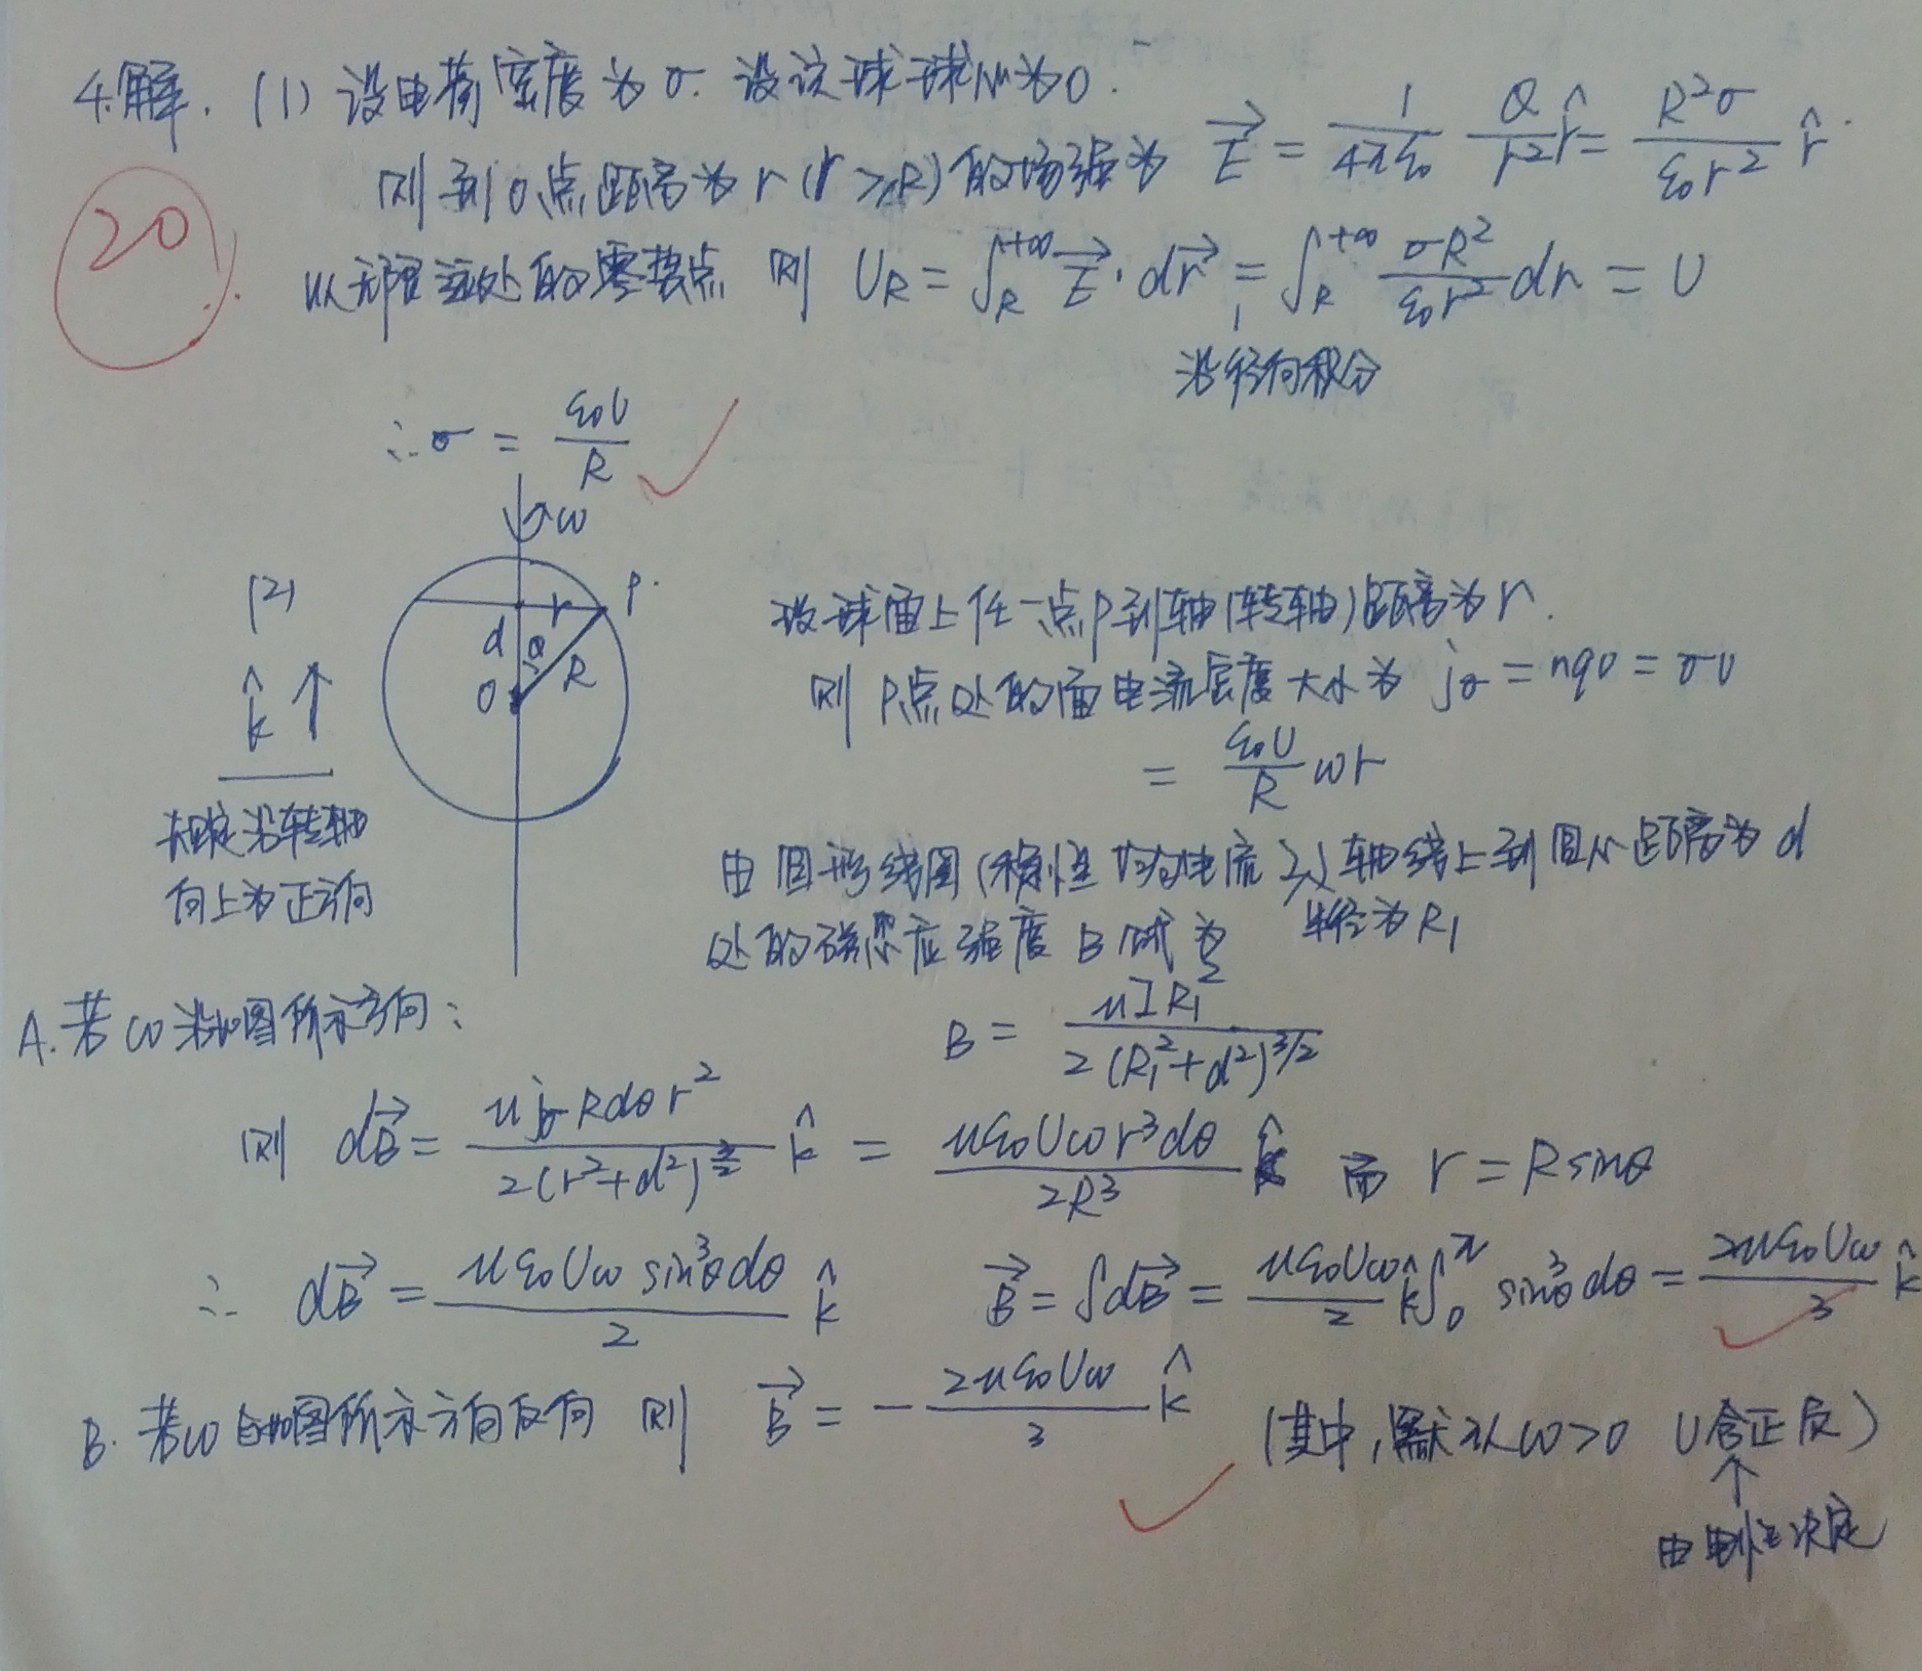 4.解. (1) 设电荷密度为σ. 设该球球心为O.
则到O点距离为r(r≥R)的场强为 $\vec{E} = \frac{1}{4\pi\varepsilon_0}\frac{Q}{r^2}\hat{r} = \frac{R^2\sigma}{\varepsilon_0 r^2}\hat{r}$.
20
以无限远处的零势点 则 $U_R = \int_R^{+\infty}\vec{E}\cdot d\vec{r} = \int_R^{+\infty}\frac{\sigma R^2}{\varepsilon_0 r^2}dr = U$
沿径向积分
$\therefore \sigma = \frac{\varepsilon_0 U}{R}$
ω
(2)
P
r
d
θ
R
O
$\hat{k}$ ↑
规定沿转轴
向上为正方向
设球面上任一点P到轴(转轴)距离为r.
则P点处的面电流密度大小为 $j_\sigma = nqv = \sigma v$
$= \frac{\varepsilon_0 U}{R}\omega r$
由圆形线圈(稳恒均匀电流I)轴线上到圆心距离为d
半径为R₁
处的磁感应强度B 为
$B = \frac{\mu I R_1^2}{2(R_1^2+d^2)^{3/2}}$
A.若ω沿如图所示方向:
则 $d\vec{B} = \frac{\mu j_\sigma R d\theta r^2}{2(r^2+d^2)^{\frac{3}{2}}}\hat{k} = \frac{\mu\varepsilon_0 U\omega r^3 d\theta}{2R^3}\hat{k}$ 而 $r = R\sin\theta$
$\therefore d\vec{B} = \frac{\mu\varepsilon_0 U\omega \sin^3\theta d\theta}{2}\hat{k}$ $\vec{B} = \int d\vec{B} = \frac{\mu\varepsilon_0 U\omega}{2}\hat{k}\int_0^\pi \sin^3\theta d\theta = \frac{2\mu\varepsilon_0 U\omega}{3}\hat{k}$
B.若ω与如图所示方向反向 则 $\vec{B} = -\frac{2\mu\varepsilon_0 U\omega}{3}\hat{k}$ (其中,默认ω>0 U含正反)
↑
由电性决定